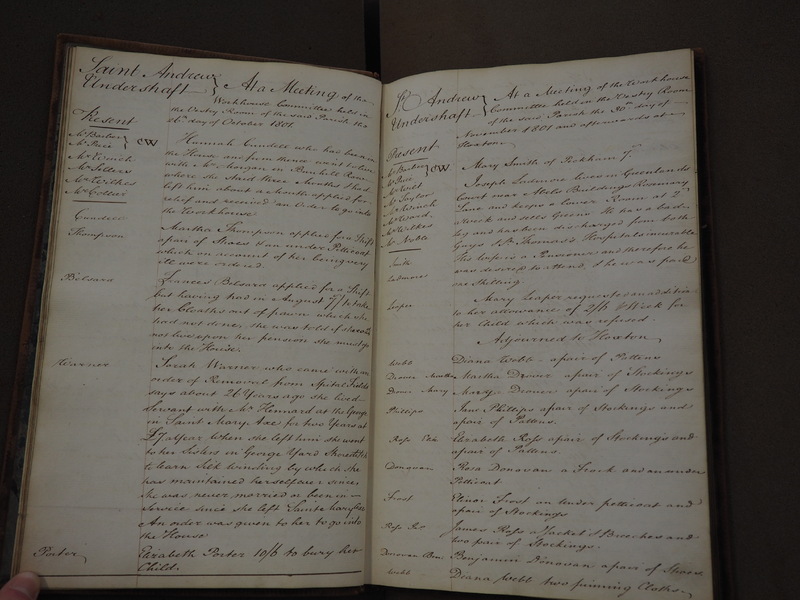 Saint Andrew
Undershaft
At a Meeting of the
Workhouse Committee held in
the Vestry Room of the said Parish the
26th day of October 1801.
Present
Mr Barber
Mr Pace
CW
Mr Sellers
Mr Wilkes
Mr Collier
Cundell
Hannah Cundell who has been in
the House and from thence went to live
with Mr in Bunhill Row
where she stard three Months & had
left him about a Month applied for
relief and received an Order to go into
the Workhouse
Thompson
Martha Thompson applied for a Shift
apair of Shoes & an under Petticoat
which on account of her being very
were ordered.
Belsara
Frances Belsara applied for a Shift
but having had in August 7/ to take
her Cloaths out of pawn which she
had not done, she was told if she could
not live upon her pension she must go
into the House.
Warner
Sarah Warner who came with an
order of Removal from Spital Fields
says about 26 Years ago she lived
Servant with Mr Hennard at the George
in Saint Mary Axe for two Years at
£7 a Year When she left him she went
to her Sisters in George Yard Shoreditch
to learn Silk winding by which she
has maintained herself ever since
She was never married or been in
Service since she left Saint Mary Axe
An order was given to her to go into
the House
Porter
Elizabeth Porter 10/6 to bury her
Child.
St Andrew
Undershaft
At a Meeting of the Workhouse
Committee held in the Vestry Room
of the said Parish the 30th day of
November 1801 and afterwards at
Hoxton
Present
Mr Barber
Mr Pace
CW
Mr Taylor
Mr Ward
Mr Wilkes
Mr Noble
Smith
Mary Smith of Peckham 7/.
Ludmore
Joseph Ludmore lives in Greenlands
Court near Buildings Rosemary
Lane and keeps a lower Room at 2/
Week and sells Greens He has a bad
leg and has been discharged from both
Guys & St Thomas's Hospitals incurable
His wife is a and therefore he
was desired to attend, & he was paid
one Shilling.
Leaper
Mary Leaper requests an addition
to her allowance of 2/6 Week for
her Child which was refused
Adjourned to Hoxton
Webb
Diana Webb - apair of Pattens
Drover Martha
Martha Drover apair of Stockings
Drover Mary
Mary Drover apair of Stockings
Phillips
Jane Phillips apair of Stockings and
apair of Pattens.
Ross Eliz
Elizabeth Ross apair of Stockings and
apair of Pattens
Donovan
Rosa Donovan a Frock and an under
Petticoat
Frost
Elinor Frost an under petticoat and
apair of Stockings
Ross Jas
James Ross a Jacket & Breeches and
two pair of Stockings.
Donovan Ben
Benjamin Donovan apair of Shoes
Webb
Diana Webb two pinning Cloths.